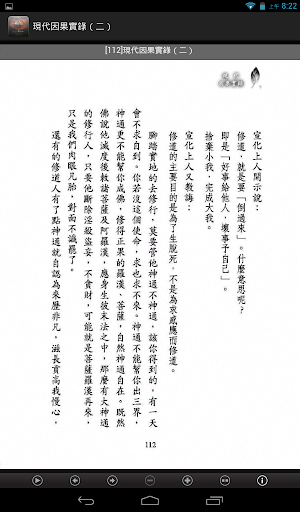 上午 8:22
現代因果實錄（二）
[112]現代因果實錄（二）
宣化上人開示說：
修道，就是「倒過來」。什麼意思呢？
即是「好事給他人，壞事予自己」。
捨棄小我，完成大我。
宣化上人又教誨：
修道的主要目的是為了生脫死，不是為求感應而修道。
腳踏實地的去修行，莫要管他神通不神通，該你得到的，有一天
會不求自到。你若沒這個使命，求也求不來。神通不能幫你出三界，
神通更不能幫你成佛。修得正果的羅漢、菩薩，自然神通自在。既然
佛說他滅度後敕諸菩薩及阿羅漢，應身生彼末法之中，那麼有大神通
的修行人，只要他斷除淫殺盜妄，不貪財，可能就是菩薩羅漢再來，
只是我們肉眼凡胎，對面不識罷了。
還有的修道人有了點神通就自認為來歷非凡，滋長貢高我慢心，
112